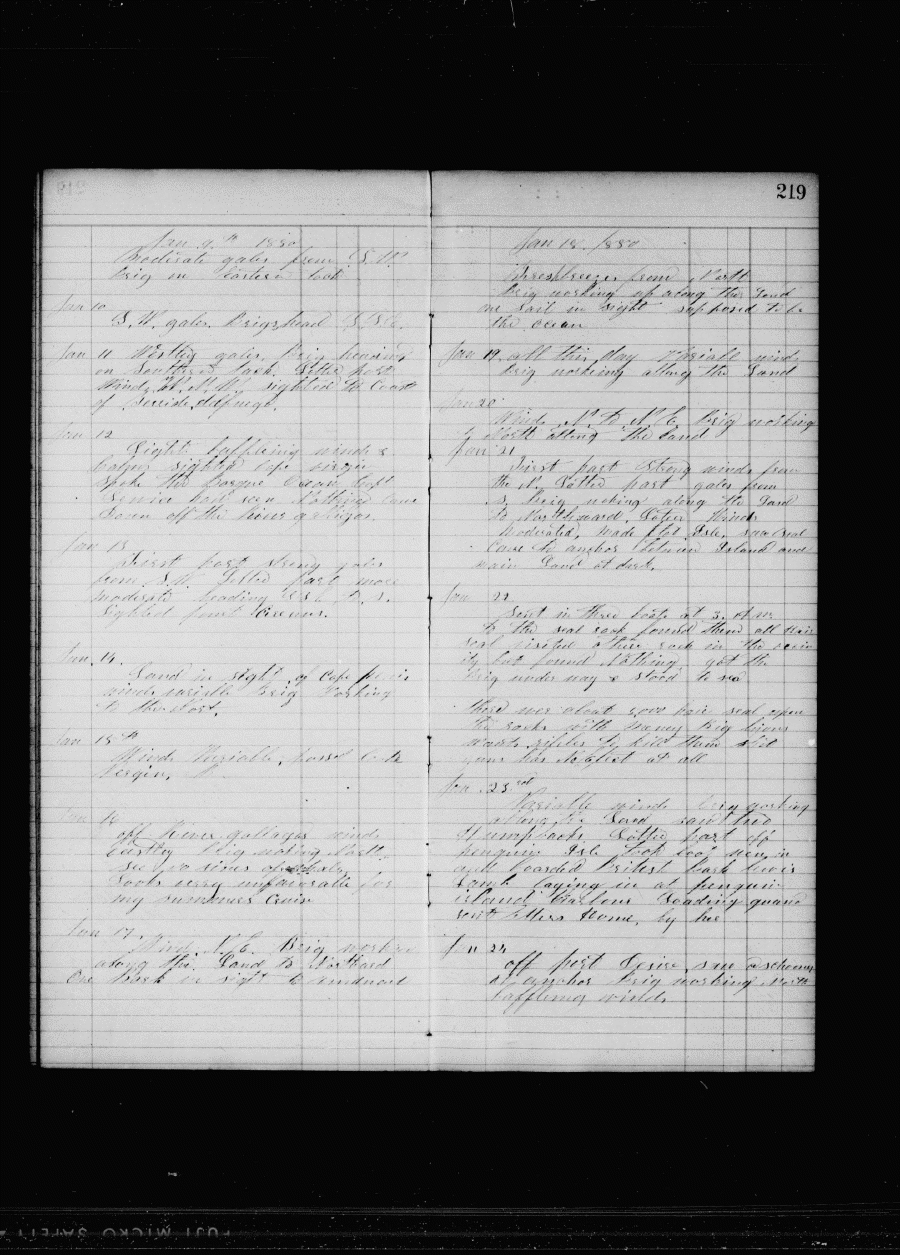 219
Jan 9th 1880
Moderate gales from S.W.
Brig on Eastern tack
Jan 10
S.W. gales. Brigs head S.S.E.
Jan 11 Westley gales, Brig heading
on Southern tack. Latter part
Wind W.N.W. sighted the Coast
of
Jan 12
Light baffleing winds &
Calms sighted Cape virgin
Spoke the Barque Ocean
seen Nothing Came
Down off the River gallegos.
Jan 13
First part strong gales
from S.W. Latter part more
moderate heading S.S.E. to S.
Sighted
Jan 14.
Land in sight of Cape
winds variable Brig Working
to the
Jan 15th
Winds Variable, passed Cape
Virgin,
Jan 16
off River gallegos wind
Eastley Brig working North
See no signs of
Looks very unfavorable for
my summers Cruise
Jan 17.
Wind N.E. Brig working
along the Land to Northard
One bark in sight
219
Jan 18 1880
Fresh breezes from North
Brig working up along the Land
one sail in sight supposed to be
the ocean
Jan 19. all this day Variable winds
Brig working along the Land
Jan 20
Wind N. to N.E. Brig working
to North along the Land
Jan 21
First part Strong winds from
the N. Latter part gales from
S. Brig working along the Land
to Northward. Later Winds
Moderated, made flat Isle, saw seal
Came to anchor between Island and
main Land at dark.
Jan 22
Sent in three boats at 3. A.M.
to the seal rock found them all Hair
seal visited other rock in the
but found Nothing got the
Brig under way & stood to sea
there was about 5000 hair seal upon
the rocks with many Big lions
wants rifles to kill them shot
guns has No Effect at all
Jan 23rd
Variable winds brig working
along the Land saw two
Humpbacks Latter part off
penguin Isle took boat went in
and boarded British bark
laying in at penguin
island Harbour Loading guano
sent letters Home, by her
Jan 24
off port Desire, saw a schooner
at anchor Brig working North
baffleing winds